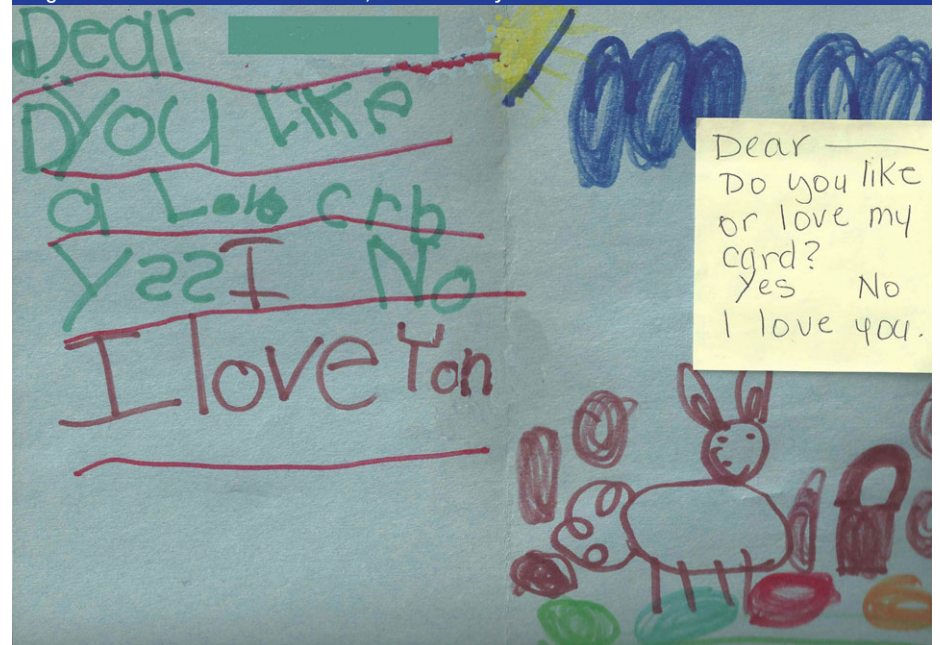 Dear
D you like
a Love crb
Yss I No
I love You
Dear
Do you like
or love my
card?
Yes No
I love you.